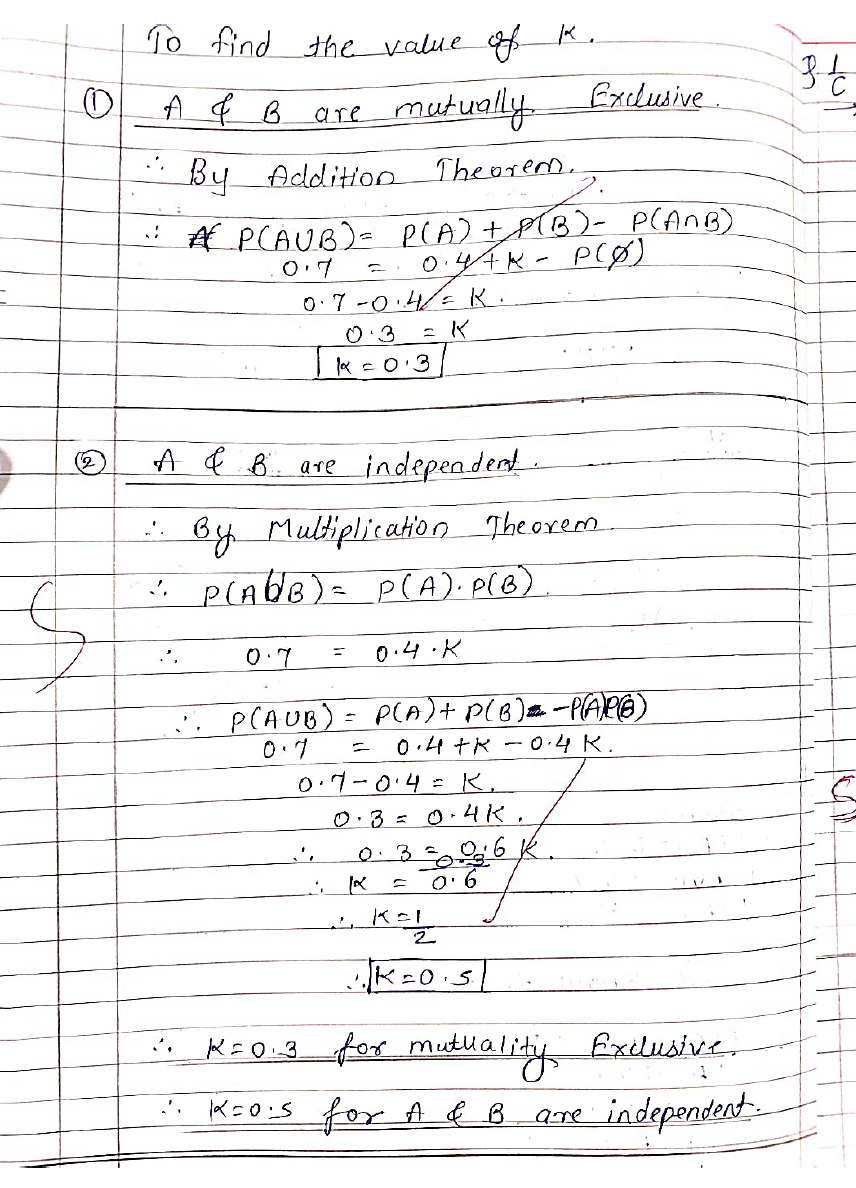 To find the value of K.
① A & B are mutually Exclusive.
∴ By Addition Theorem.
∴ P(A∪B) = P(A) + P(B) - P(A∩B)
0.7 = 0.4 + K - P(∅)
0.7 - 0.4 = K.
0.3 = K
K = 0.3
② A & B are independent.
∴ By Multiplication Theorem.
∴ P(A∪B) = P(A). P(B).
∴ 0.7 = 0.4 . K
∴ P(A∪B) = P(A) + P(B) - P(A)P(B)
0.7 = 0.4 + K - 0.4 K.
0.7 - 0.4 = K.
0.3 = 0.4 K.
∴ 0.3 = 0.6 K.
∴ K = 0.3/0.6
∴ K = 1/2
∴ K = 0.5
∴ K = 0.3 for mutuality Exclusive.
∴ K = 0.5 for A & B are independent.